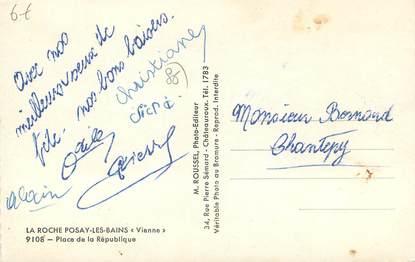 6€
Avec nos
meilleurs voeux de
fête. nos bons baisers.
Christiane
86
Odile
Pierre
Alain
LA ROCHE POSAY-LES-BAINS « Vienne »
9108 - Place de la République
M. ROUSSEL, Photo-Editeur
34, Rue Pierre Sémard - Châteauroux. Tél. 1783
Véritable Photo au Bromure - Reprod. Interdite
Monsieur Bernard
Chantepy